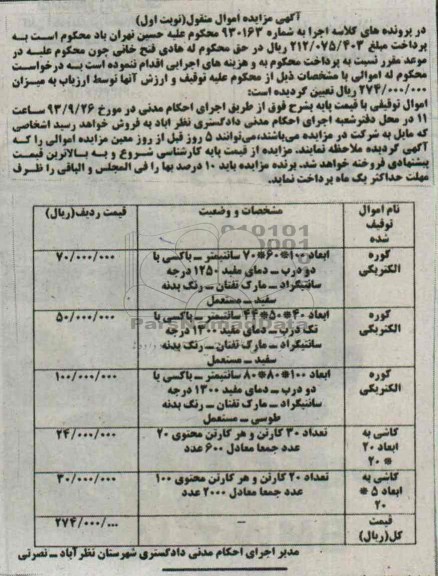 آگهی مزایده اموال منقول(نوبت اول)
در پرونده های کلاسه اجرا به شماره ۹۳۰۱۶۳ محکوم علیه حسین تهران یاد محکوم است به
پرداخت مبلغ ۲۱۲/۰۷۵/۴۰۳ ریال در حق محکوم له هادی فتح خانی چون محکوم علیه در
موعد مقرر نسبت به پرداخت محکوم به و هزینه های اجرایی اقدام ننموده است به درخواست
محکوم له اموالی با مشخصات ذیل از محکوم علیه توقیف و ارزش آنها توسط ارزیاب به میزان
۲۷۴/۰۰۰/۰۰۰ ریال تعیین گردیده است:
اموال توقیفی با قیمت پایه بشرح فوق از طریق اجرای احکام مدنی در مورخ ۹۳/۹/۲۶ ساعت
۱۱ در محل دفترشعبه اجرای احکام مدنی دادگستری نظر اباد به فروش خواهد رسید اشخاصی
که مایل به شرکت در مزایده می‌باشند،می‌توانند ۵ روز قبل از روز معین مزایده اموالی را که
آگهی گردیده ملاحظه نمایند. مزایده از قیمت پایه کارشناسی شروع و به بالاترین قیمت
پیشنهادی فروخته خواهد شد. برنده مزایده باید ۱۰ درصد بها را فی المجلس و الباقی را ظرف
مهلت حداکثر یک ماه پرداخت نماید.
نام اموال توقیف شده
مشخصات و وضعیت
قیمت ردیف(ریال)
کوره الکتریکی
ابعاد ۱۰۰*۶۰*۷۰ سانتیمتر _ باکسی با
دو درب _ دمای مفید ۱۲۵۰ درجه
سانتیگراد _ مارک تفتان _ رنگ بدنه
سفید _ مستعمل
۷۰/۰۰۰/۰۰۰
کوره الکتریکی
ابعاد ۴۰*۵۰*۴۴ سانتیمتر _ باکسی با
تک درب _ دمای مفید ۱۳۰۰ درجه
سانتیگراد _ مارک تفتان _ رنگ بدنه
سفید _ مستعمل
۵۰/۰۰۰/۰۰۰
کوره الکتریکی
ابعاد ۱۰۰*۸۰*۸۰ سانتیمتر _ باکسی با
دو درب _ دمای مفید ۱۳۰۰ درجه
سانتیگراد _ مارک تفتان _ رنگ بدنه
طوسی _ مستعمل
۱۰۰/۰۰۰/۰۰۰
کاشی به ابعاد ۲۰ * ۲۰
تعداد ۳۰ کارتن و هر کارتن محتوی ۲۰
عدد جمعا معادل ۶۰۰ عدد
۲۴/۰۰۰/۰۰۰
کاشی به ابعاد ۵ * ۲۰
تعداد ۲۰ کارتن و هر کارتن محتوی ۱۰۰
عدد جمعا معادل ۲۰۰۰ عدد
۳۰/۰۰۰/۰۰۰
قیمت کل(ریال)
_
۲۷۴/۰۰۰/۰۰۰
مدیر اجرای احکام مدنی دادگستری شهرستان نظرآباد _ نصرتی